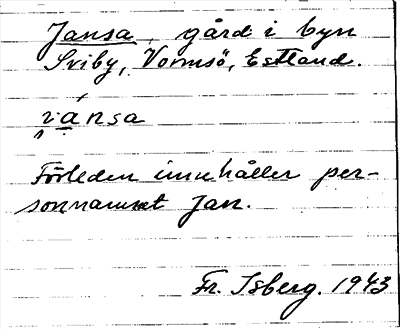 Jansa, gård i byn
Sviby, Vormsö, Estland.
i̯ánsa
Förleden innehåller per-
sonnamnet Jan.
Fr. Isberg. 1943